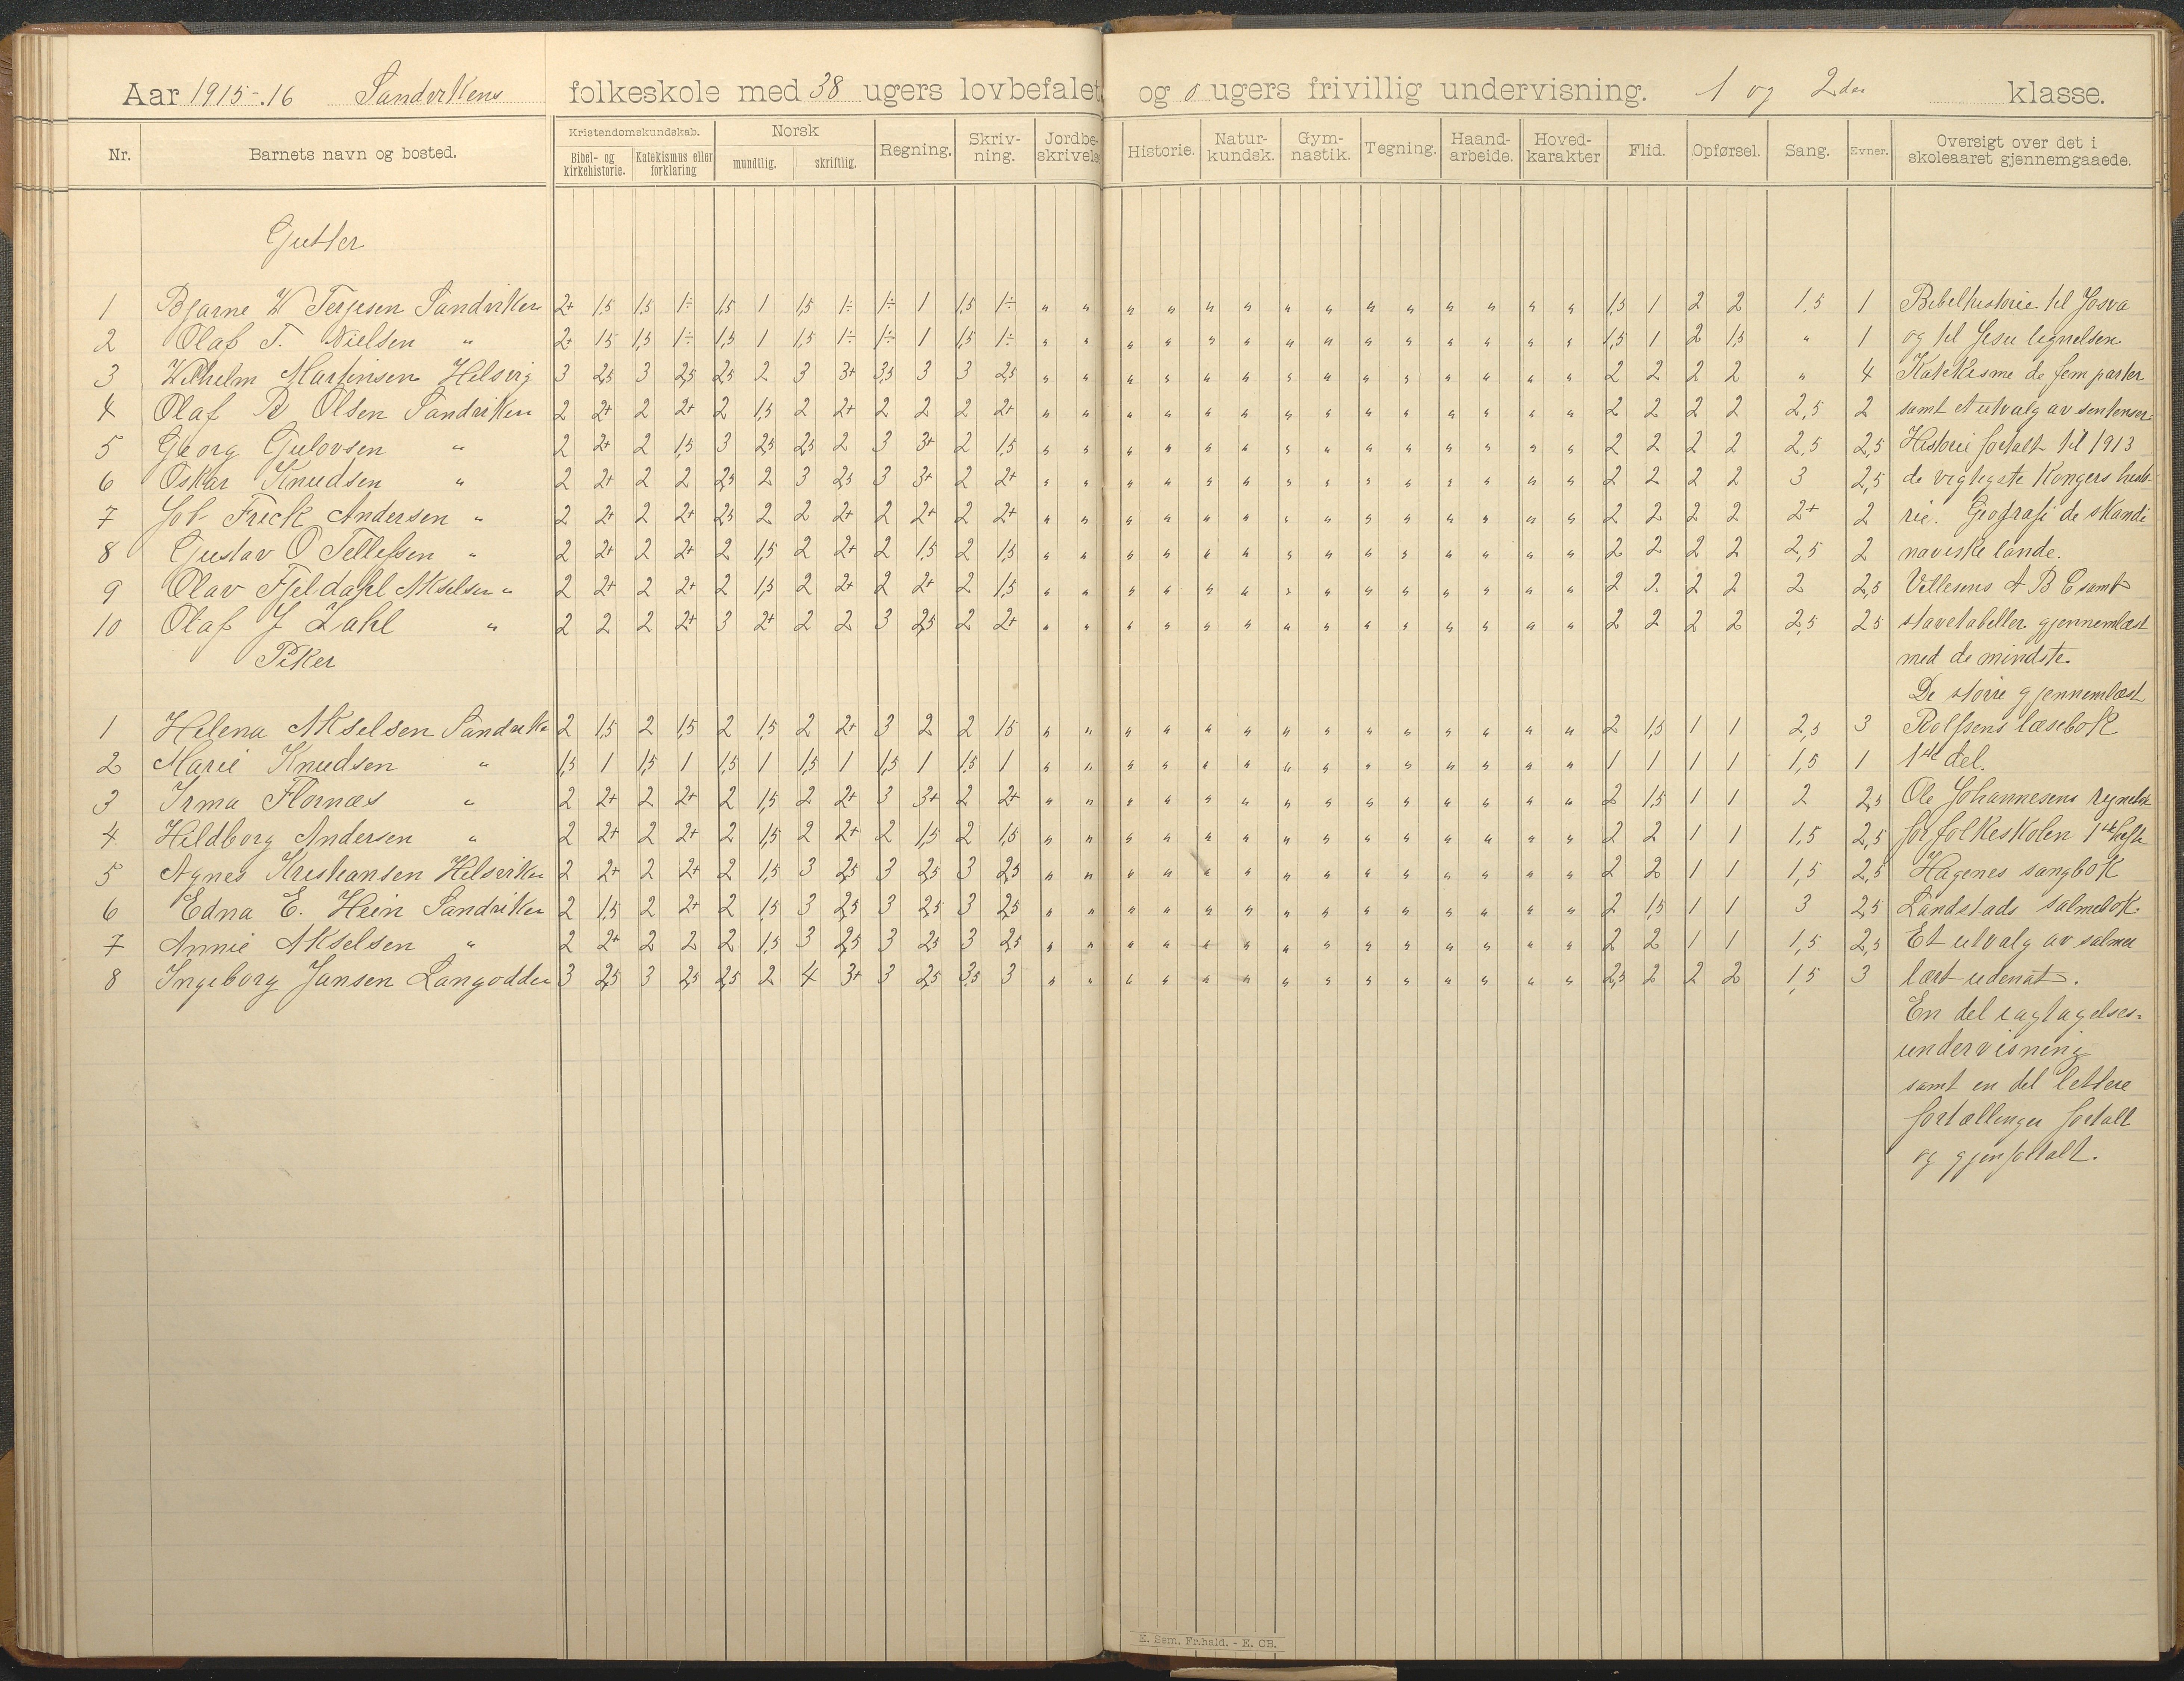 Aar 1915-.16 Sandvikens folkeskole med 38 ugers lovbefalet og 0 ugers frivillig undervisning. 1 og 2den klasse.
Nr. Barnets navn og bosted. Kristendomskundskab. Bibel- og kirkehistorie. Katekismus eller forklaring Norsk mundtlig. skriftlig. Regning. Skriv-ning. Jordbe-skrivelse Historie. Natur-kundsk. Gym-nastik. Tegning. Haand-arbeide. Hoved-karakter Flid. Opførsel. Sang. Evner. Oversigt over det i skoleaaret gjennemgaaede.
Gutter
1 Bjarne W Terjesen Sandviken 2+ 1,5 1,5 1÷ 1,5 1 1,5 1÷ 1÷ 1 1,5 1÷ " " " " " " " " " " " " " " 1,5 1 2 2 1,5 1 Bibelhistorie til Josva
2 Olaf T. Nielsen " 2+ 1,5 1,5 1÷ 1,5 1 1,5 1÷ 1÷ 1 1,5 1÷ " " " " " " " " " " " " " " 1,5 1 2 1,5 " 1 og til Jesu lignelsen
3 Wilhelm Martinsen Helsvig 3 2,5 3 2,5 2,5 2 3 3+ 3,5 3 3 2,5 " " " " " " " " " " " " " " 2 2 2 2 " 4 Katekisme de fem parter
4 Olaf B Olsen Sandviken 2 2+ 2 2+ 2 1,5 2 2+ 2 2 2 2+ " " " " " " " " " " " " " " 2 2 2 2 2,5 2 samt et utvalg av sentenser.
5 Georg Gulovsen " 2 2+ 2 1,5 3 2,5 2,5 2 3 3+ 2 1,5 " " " " " " " " " " " " " " 2 2 2 2 2,5 2,5 Historie fortalt til 1913
6 Oskar Knudsen " 2 2+ 2 2 2,5 2 3 2,5 3 3+ 2 2+ " " " " " " " " " " " " " " 2 2 2 2 3 2,5 de vigtigste Kongers histo-
7 Joh Frick Andersen " 2 2+ 2 2+ 2,5 2 2 2+ 2 2+ 2 2+ " " " " " " " " " " " " " " 2 2 2 2 2+ 2 rie. Geografi de skandi
8 Gustav O Tellefsen " 2 2+ 2 2+ 2 1,5 2 2+ 2 1,5 2 1,5 " " " " " " " " " " " " " " 2 2 2 2 2,5 2 naviske lande.
9 Olav Fjeldahl Akselsen " 2 2+ 2 2+ 2 1,5 2 2+ 2 2+ 2 1,5 " " " " " " " " " " " " " " 2 2 2 2 2 2,5 Vellesens A B C samt
10 Olaf J Zahl " 2 2 2 2+ 3 2+ 2 2 3 2,5 2 2+ " " " " " " " " " " " " " " 2 2 2 2 2,5 2,5 stavetabeller gjennemlæst
Piker med de mindste.
De større gjennemlæst
1 Helena Akselsen Sandvike 2 1,5 2 1,5 2 1,5 2 2+ 3 2 2 1,5 " " " " " " " " " " " " " " 2 1,5 1 1 2,5 3 Rolfsens læsebok
2 Marie Knudsen " 1,5 1 1,5 1 1,5 1 1,5 1 1,5 1 1,5 1 " " " " " " " " " " " " " " 1 1 1 1 1,5 1 1ste del.
3 Irma Flornæs " 2 2+ 2 2+ 2 1,5 2 2+ 3 3+ 2 2+ " " " " " " " " " " " " " " 2 1,5 1 1 2 2,5 Ole Johannesens
4 Hildborg Andersen " 2 2+ 2 2+ 2 1,5 2 2+ 2 1,5 2 1,5 " " " " " " " " " " " " " " 2 2 1 1 1,5 2,5 for folkeskolen 1ste hefte
5 Agnes Kristiansen Helserviken 2 2+ 2 2+ 2 1,5 3 2,5 3 2,5 3 2,5 " " " " " " " " " " " " " " 2 2 1 1 1,5 2,5 Hagenes sangbok
6 Edna E. Hein Sandviken 2 1,5 2 2+ 2 1,5 3 2,5 3 2,5 3 2,5 " " " " " " " " " " " " " " 2 1,5 1 1 3 2,5 Landstads salmebok.
7 Annie Akselsen " 2 2+ 2 2 2 1,5 3 2,5 3 2,5 3 2,5 " " " " " " " " " " " " " " 2 2 1 1 1,5 2,5 Et utvalg av salmer
8 Ingeborg Jansen Langodden 3 2,5 3 2,5 2,5 2 4 3+ 3 2,5 3,5 3 " " " " " " " " " " " " " " 2,5 2 2 2 1,5 3 lært udenat.
En del iagtagelses-
undervisning
samt en del lettere
fortællinger fortalt
og gjenfortalt.
E. Sem, Fr.hald. - E. CB.